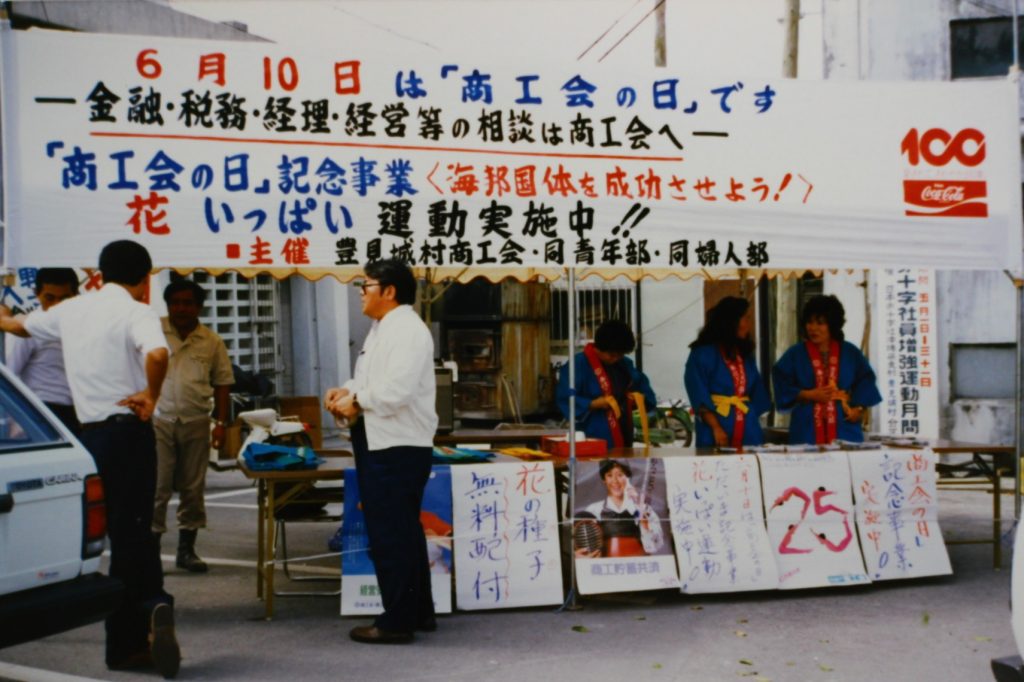 6月10日は「商工会の日」です
ー金融・税務・経理・経営等の相談は商工会へー
「商工会の日」記念事業〈海邦国体を成功させよう!〉
花いっぱい運動実施中!!
■主催 豊見城村商工会・同青年部・同婦人部
100
Coca-Cola
十字社員増強運動月間
五月一日~三十一日
花の種子
無料配付
商工貯蓄共済
六月十日は
ただいま記念事業
花いっぱい運動
実施中
25
商工会の日
記念事業
実施中!
TOYOTA CORONA